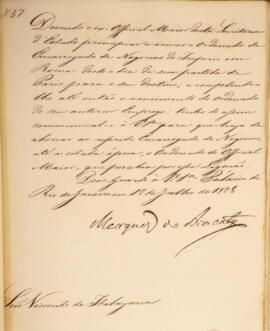 Nº 57
Devendo o ex-Official Maior desta Secretaria
d'Estado principiar a vencer o Ordenado de
Encarregado de Negocios do Imperio em
Roma desde o dia da sua partida de
Pariz para o seu destino, e competindo-
lhe até então o vencimento do ordenado
do seu anterior Emprego, tenho assim
communical-o a V. Sª para que haja de
abonar ao referido Encarregado de Negocios,
até a citada época, o Ordenado de Official
Maior, que percebia por essa Legação.
Deos Guarde a V. Sª Palacio do
Rio de Janeiro em 12 de Julho de 1828
Marquez de Aracaty
Snr Visconde de Itabayana